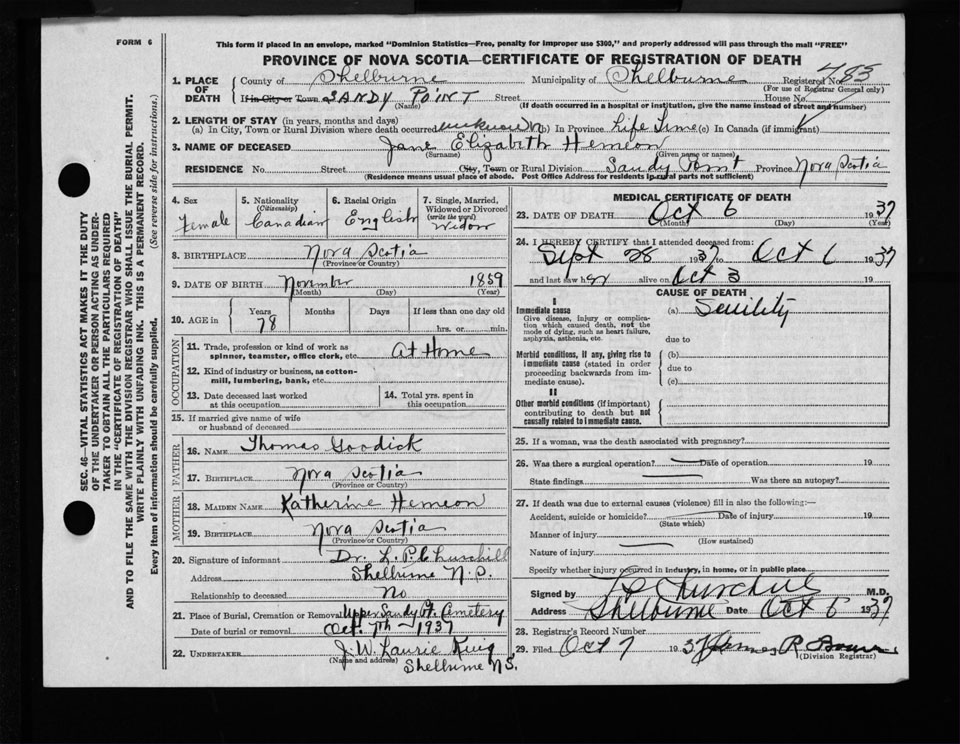 FORM 6
This form if placed in an envelope, marked "Dominion Statistics—Free, penalty for improper use $300," and properly addressed will pass through the mall "FREE"
PROVINCE OF NOVA SCOTIA—CERTIFICATE OF REGISTRATION OF DEATH
1. PLACE OF DEATH County of Shelburne Municipality of Shelburne Registered No. 485
(For use of Registrar General only)
If in City or Town of SANDY POINT Street House No.
(Name) (If death occurred in a hospital or institution, give the name instead of street and number)
2. LENGTH OF STAY (in years, months and days)
(a) In City, Town or Rural Division where death occurred unknown (b) In Province Life Time (c) In Canada (if immigrant)
3. NAME OF DECEASED Jane Elizabeth Hemeon
(Surname) (Given name or names)
RESIDENCE No. Street City, Town or Rural Division Sandy Point Province Nova Scotia
(Residence means usual place of abode. Post Office Address for residents in rural parts not sufficient)
4. Sex Female
5. Nationality (Citizenship) Canadian
6. Racial Origin English
7. Single, Married, Widowed or Divorced (write the word) Widow
8. BIRTHPLACE Nova Scotia
(Province or Country)
9. DATE OF BIRTH November 1859
(Month) (Day) (Year)
10. AGE in Years Months Days If less than one day old
78 hrs. or min.
OCCUPATION
11. Trade, profession or kind of work as spinner, teamster, office clerk, etc. At Home
12. Kind of industry or business, as cotton-mill, lumbering, bank, etc.
13. Date deceased last worked at this occupation
14. Total yrs. spent in this occupation
15. If married give name of wife or husband of deceased
FATHER
16. NAME Thomas Goodick
17. BIRTHPLACE Nova Scotia
(Province or Country)
MOTHER
18. MAIDEN NAME Katherine Hemeon
19. BIRTHPLACE Nova Scotia
(Province or Country)
20. Signature of informant Dr. L. P. Churchill
Address Shelburne N.S.
Relationship to deceased No
21. Place of Burial, Cremation or Removal Upper Sandy Pt. Cemetery
Date of burial or removal Oct. 7th — 1937
22. UNDERTAKER J. W. Laurie King
(Name and address) Shelburne N.S.
MEDICAL CERTIFICATE OF DEATH
23. DATE OF DEATH Oct 6 1937
(Month) (Day) (Year)
24. I HEREBY CERTIFY that I attended deceased from:
Sept 28 1937 to Oct 6 1937
and last saw her alive on Oct 3 19
CAUSE OF DEATH
I
Immediate cause
Give disease, injury or complication which caused death, not the mode of dying, such as heart failure, asphyxia, asthenia, etc.
(a) Senility
due to
Morbid conditions, if any, giving rise to immediate cause (stated in order proceeding backwards from immediate cause).
(b)
due to
(c)
II
Other morbid conditions (if important) contributing to death but not causally related to immediate cause.
25. If a woman, was the death associated with pregnancy?
26. Was there a surgical operation? Date of operation 19
State findings Was there an autopsy?
27. If death was due to external causes (violence) fill in also the following:—
Accident, suicide or homicide? Date of injury 19
(State which)
Manner of injury
(How sustained)
Nature of injury
Specify whether injury occurred in industry, in home, or in public place
Signed by L P Churchill M.D.
Address Shelburne Date Oct 6 1937
28. Registrar's Record Number
29. Filed Oct 7 1937 James R
(Division Registrar)
SEC. 46—VITAL STATISTICS ACT MAKES IT THE DUTY
OF THE UNDERTAKER OR PERSON ACTING AS UNDER-
TAKER TO OBTAIN ALL THE PARTICULARS REQUIRED
IN THE "CERTIFICATE OF REGISTRATION OF DEATH"
AND TO FILE THE SAME WITH THE DIVISION REGISTRAR WHO SHALL ISSUE THE BURIAL PERMIT.
WRITE PLAINLY WITH UNFADING INK. THIS IS A PERMANENT RECORD.
Every item of information should be carefully supplied. (See reverse side for instructions.)